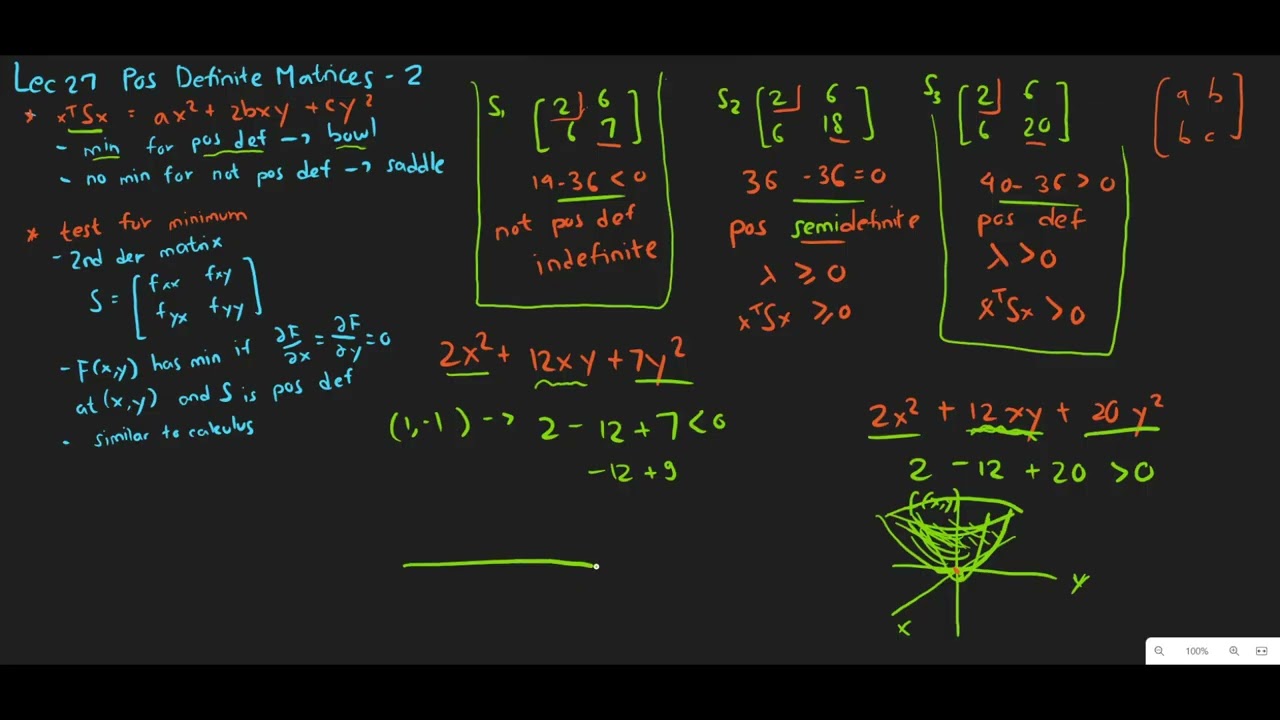 Lec 27 Pos Definite Matrices - 2
* xᵀSx = ax² + 2bxy + cy²
- min for pos def → bowl
- no min for not pos def → saddle
* test for minimum
- 2nd der matrix
S = [fxx fxy
fyx fyy]
- F(x,y) has min if ∂F/∂x = ∂F/∂y = 0
at (x,y) and S is pos def
- similar to calculus
S₁ [2 6
6 7]
14-36 < 0
not pos def
indefinite
S₂ [2 6
6 18]
36 -36 = 0
pos semidefinite
λ ≥ 0
xᵀSx ≥ 0
S₃ [2 6
6 20]
40-36 > 0
pos def
λ > 0
xᵀSx > 0
[a b
b c]
2x² + 12xy + 7y²
(1,-1) → 2 - 12 + 7 < 0
-12 + 9
2x² + 12xy + 20y²
2 -12 + 20 > 0
f(x,y)
y
x
100%